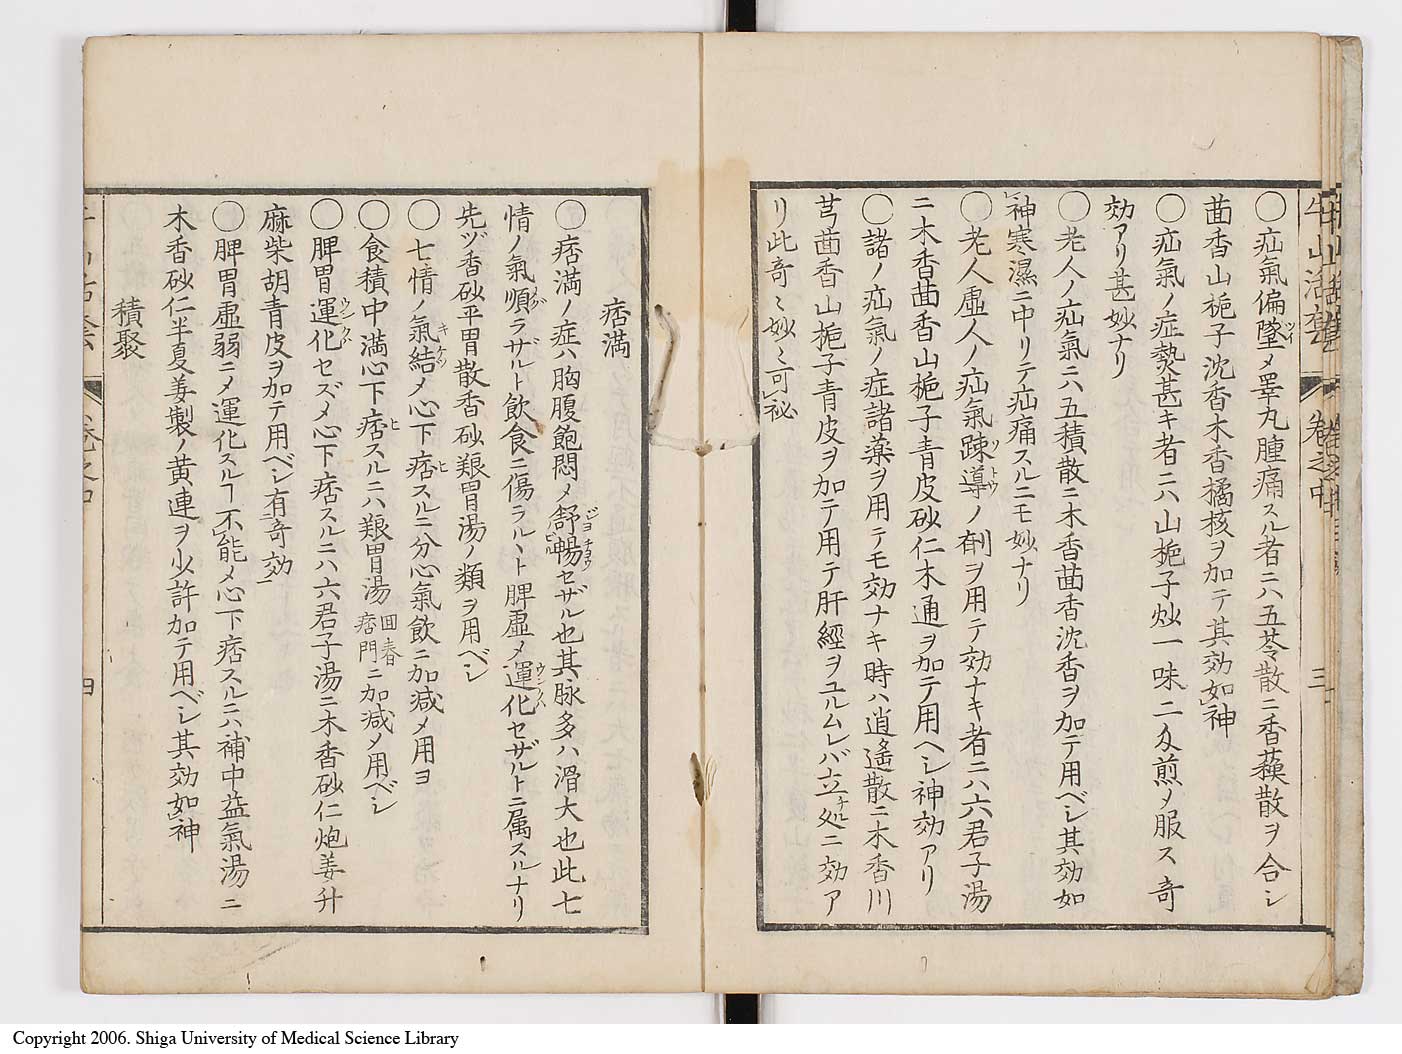 〇疝氣偏墜メ睪丸腫痛スル者ニハ五苓散ニ香蘓散ヲ合シ
茴香山梔子沈香木香橘核ヲ加テ其効如神
〇疝氣ノ症𤍠甚キ者ニハ山梔子炒一味二匁煎メ服ス奇
効アリ甚妙ナリ
〇老人ノ疝氣ニハ五積散ニ木香茴香沈香ヲ加テ用ベシ其効如
神寒濕ニ中リテ疝痛スルニモ妙ナリ
〇老人虛人ノ疝氣疎導ノ剤ヲ用テ効ナキ者ニハ六君子湯
ニ木香茴香山梔子青皮砂仁木通ヲ加テ用ヘシ神効アリ
〇諸ノ疝氣ノ症諸薬ヲ用テモ効ナキ時ハ逍遙散ニ木香川
芎茴香山梔子青皮ヲ加テ用テ肝經ヲユルムレバ立処ニ効ア
リ此奇〻妙〻可秘
牛山活套 卷之中 三
痞満
〇痞満ノ症ハ胸腹飽悶メ舒暢セザル也其脉多ハ滑大也此七
情ノ氣順ラザルト飲食ニ傷ラルヽト脾虛メ運化セザルトニ属スルナリ
先ヅ香砂平胃散香砂䬧胃湯ノ類ヲ用ベシ
〇七情ノ氣結メ心下痞スルニ分心氣飲ニ加減メ用ヨ
〇食積中満心下痞スルニハ䬧胃湯回春痞門ニ加減メ用ベシ
〇脾胃運化セズメ心下痞スルニハ六君子湯ニ木香砂仁炮姜升
麻柴胡青皮ヲ加テ用ベシ有奇効
〇脾胃虛弱ニメ運化スルヿ不能メ心下痞スルニハ補中益氣湯ニ
木香砂仁半夏姜製ノ黄連ヲ少許加テ用ベシ其効如神
積聚
四
Copyright 2006. Shiga University of Medical Science Library